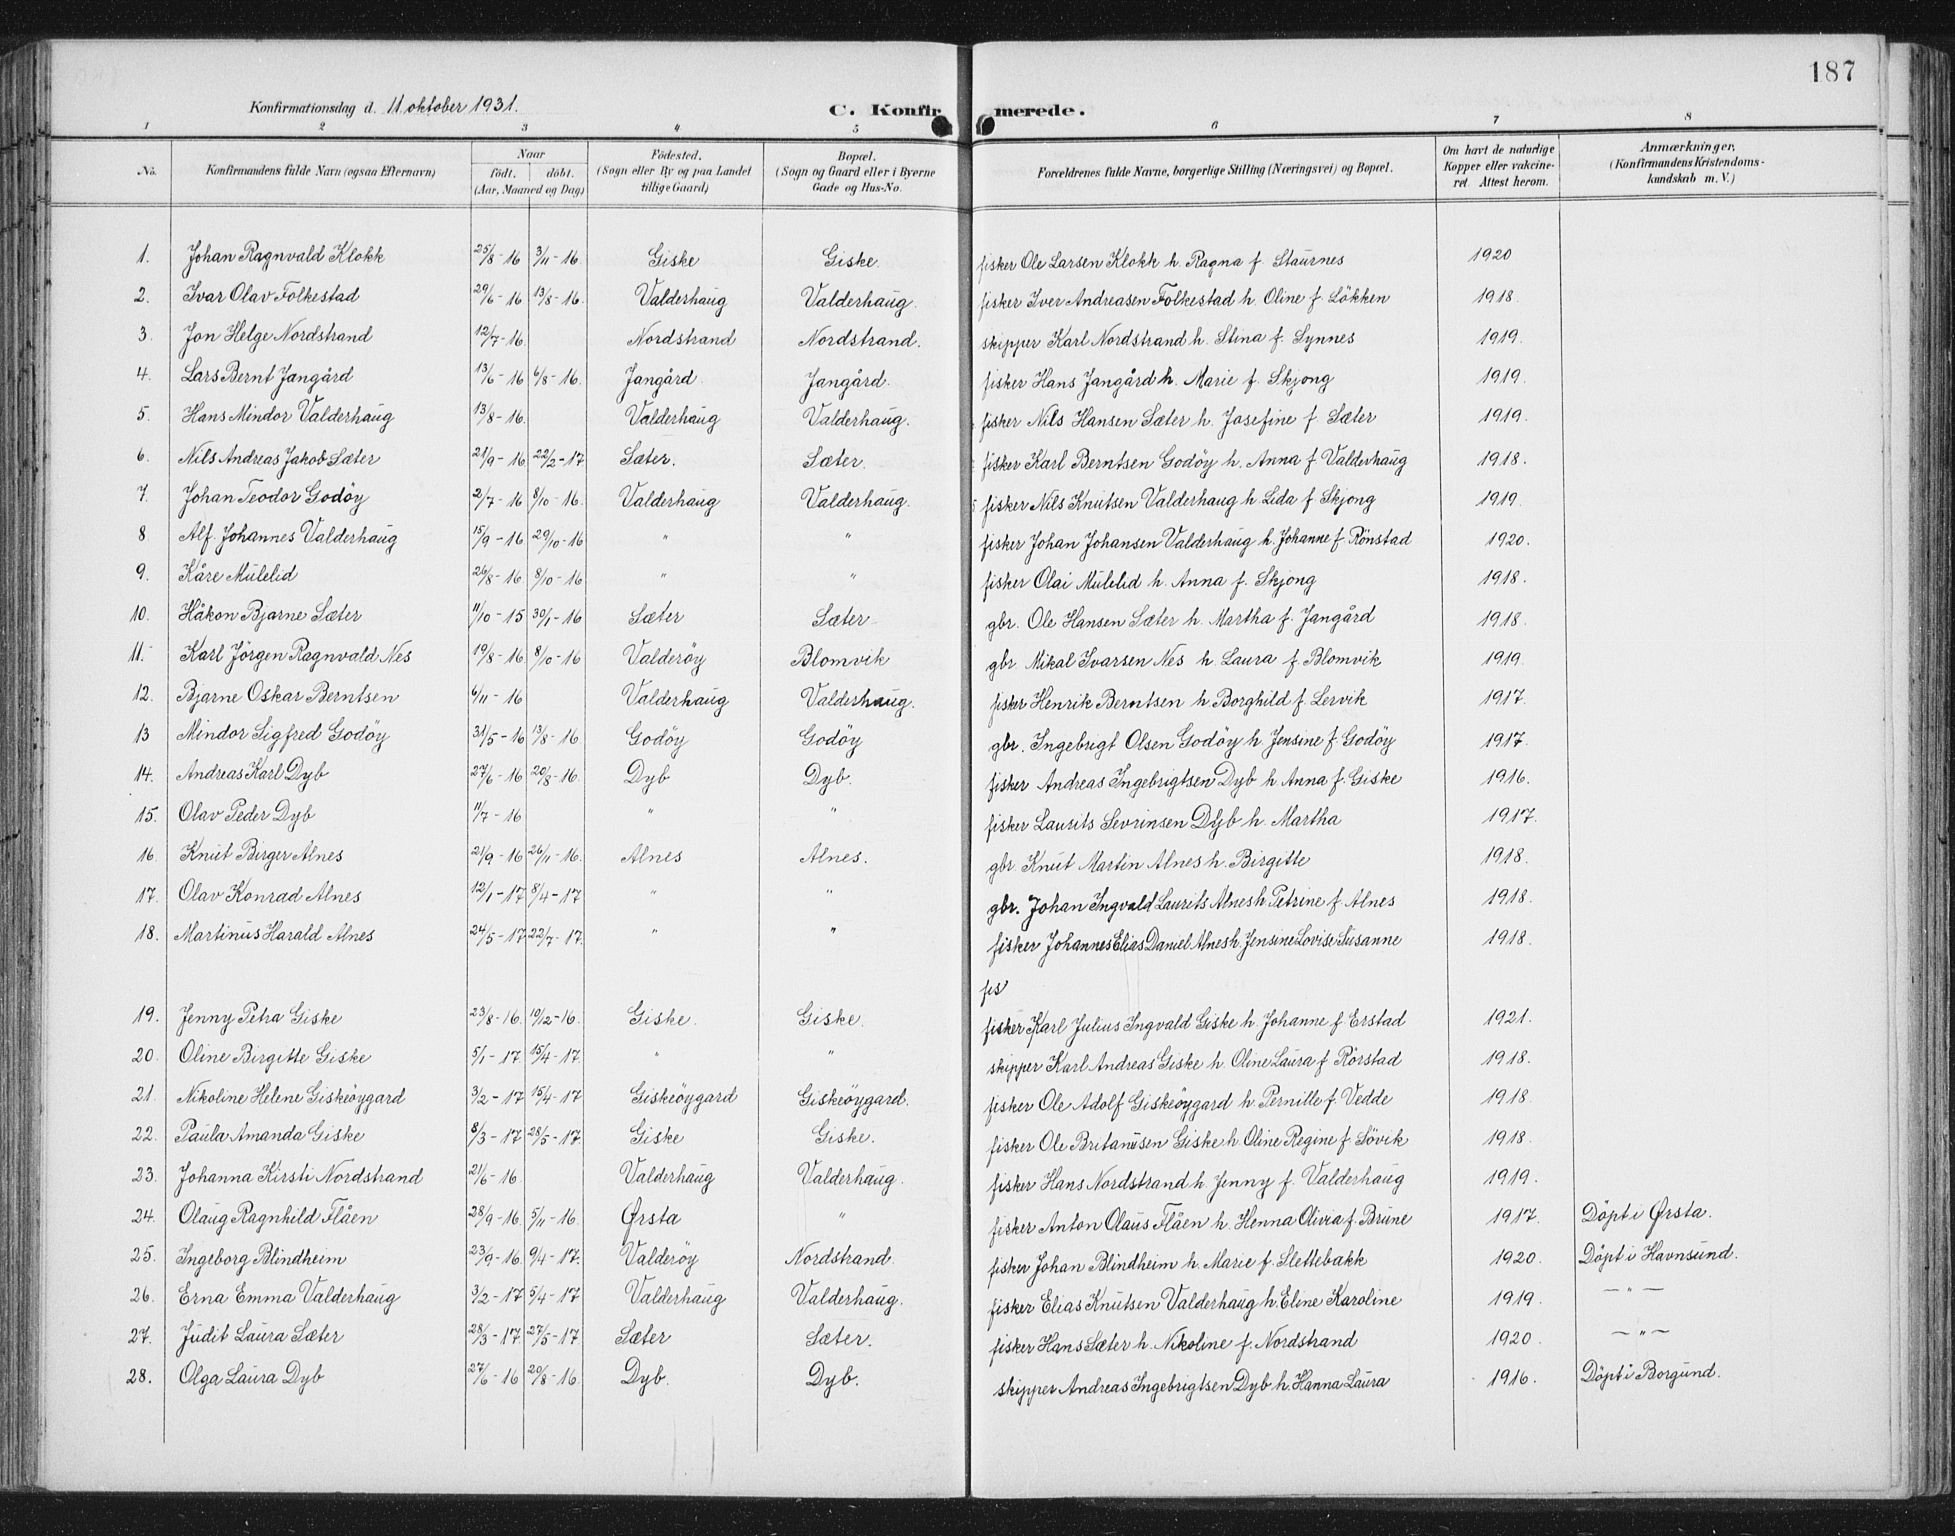 187
Konfirmationsdag d. 11 oktober 1931. C. Konfirmerede.
1 2 3 4 5 6 7 8
No. Konfirmandens fulde Navn (ogsaa Efternavn) Naar født. døbt. (Aar, Maaned og Dag) Fødested. (Sogn eller By og paa Landet tillige Gaard) Bopæl. (Sogn og Gaard eller i Byerne Gade og Hus-No. Forældrenes fulde Navne, borgerlige Stilling (Næringsvei) og Bopæl. Om havt de naturlige Kopper eller vakcineret. Attest herom. Anmærkninger, (Konfirmandens Kristendomskundskab m. V.)
1. Johan Ragnvald Klokk 25/8-16 3/11-16. Giske Giske. fisker Ole Larsen Klokk h. Ragna f. Staurnes 1920
2. Ivar Olav Folkestad 29/6-16 13/8-16. Valderhaug Valderhaug. fisker Iver Andreasen Folkestad h. Oline f. Løkken 1918.
3. Jon Helge Nordstrand 12/7-16. Nordstrand Nordstrand. skipper Karl Nordstrand h. Stina f. Synnes 1919.
4. Lars Bernt Jangård 13/6-16 6/8-16. Jangård. Jangård. fisker Hans Jangård h. Marie f. Skjong 1919.
5. Hans Mindor Valderhaug 13/8-16. Valderhaug Valderhaug. fisker Nils Hansen Sæter h. Josefine f. Sæter 1919.
6. Nils Andreas Jakob Sæter 21/9-16 22/2-17 Sæter. Sæter. fisker Karl Berntsen Godöy h. Anna f. Valderhaug 1918.
7. Johan Teodor Godöy 2/7-16 8/10-16. Valderhaug Valderhaug. fisker Nils Knutsen Valderhaug h Lida f Skjong 1919.
8 Alf Johannes Valderhaug 15/9-16 29/10-16 " " fisker Johan Johansen Valderhaug h. Johanne f. Rönstad 1920.
9. Kåre Mulelid 26/8-16 8/10-16 " " fisker Olai Mulelid h. Anna f. Skjong 1918.
10. Håkon Bjarne Sæter 11/10-15 30/1-16 Sæter Sæter gbr. Ole Hansen Sæter h. Martha f. Jangård 1918.
11. Karl Jörgen Ragnvald Nes 19/8-16 8/10-16 Valderöy Blomvik gbr. Mikal Ivarsen Nes h. Laura f. Blomvik 1919.
12. Bjarne Oskar Berntsen 6/11-16 Valderhaug Valderhaug. fisker Henrik Berntsen h Borghild f. Lervik 1917.
13 Mindor Sigfred Godöy 31/5-16 13/8-16 Godöy Godöy gbr. Ingebrigt Olsen Godöy h Jensine f. Godöy 1917.
14. Andreas Karl Dyb 27/6-16 20/8-16. Dyb Dyb. fisker Andreas Ingebrigtsen Dyb h Anna f. Giske 1916.
15. Olav Peder Dyb 11/7-16 " " fisker Lausits Sevrinsen Dyb h. Martha 1917.
16. Knut Birger Alnes 21/9-16 26/11-16. Alnes Alnes. gbr Knut Martin Alnes h. Birgitte 1918.
17. Olav Konrad Alnes 12/1-17 8/4-17 " " gbr. Johan Ingvald Laurits Alnes h Petrine f. Alnes 1918.
18. Martinus Harald Alnes 24/5-17 22/7-17. " " fisker Johannes Elias Daniel Alnes h. Jensine Lovise Susanne 1918.
fis
19. Jenny Petra Giske 23/8-16. 10/12-16. Giske. Giske. fisker Karl Julius Ingvald Giske h. Johanne f. Erstad 1921.
20. Oline Birgitte Giske 5/1-17 15/4-17. " " skipper Karl Andreas Giske h. Oline Laura f Rörstad 1918.
21. Nikoline Helene Giskeöygard 3/2-17 15/4-17 Giskeöygard Giskeöygard. fisker Ole Adolf Giskeöygard h. Pernille f. Vedde 1918.
22. Paula Amanda Giske 8/3-17 28/5-17. Giske Giske. fisker Ole Britanusen Giske h Oline Regine f Sövik 1918.
23. Johanna Kirsti Nordstrand 21/6-16. Valderhaug Valderhaug. fisker Hans Nordstrand h. Jenny f. Valderhaug 1919.
24. Olaug Ragnhild Flåen 28/9-16. 5/11-16. Ørsta " fisker Anton Olaus Flåen h. Henna Olivia f. Brune 1917. Döpt i Ørsta.
25. Ingeborg Blindheim 23/9-16. 9/4-17. Valderöy Nordstrand. fisker Johan Blindheim h. Marie f Slettebakk 1920. Döpt i Havnsund.
26. Erna Emma Valderhaug 3/2-17 5/4-17 Valderhaug Valderhaug. fisker Elias Knutsen Valderhaug h. Eline Karoline 1919. — " —
27. Judit Laura Sæter 28/3-17. 27/5-17. Sæter Sæter. fisker Hans Sæter h. Nikoline f. Nordstrand 1920. — " —
28. Olga Laura Dyb 27/6-16 20/8-16. Dyb. Dyb. skipper Andreas Ingebrigtsen Dyb h. Hanna Laura 1916. Döpt i Borgund.